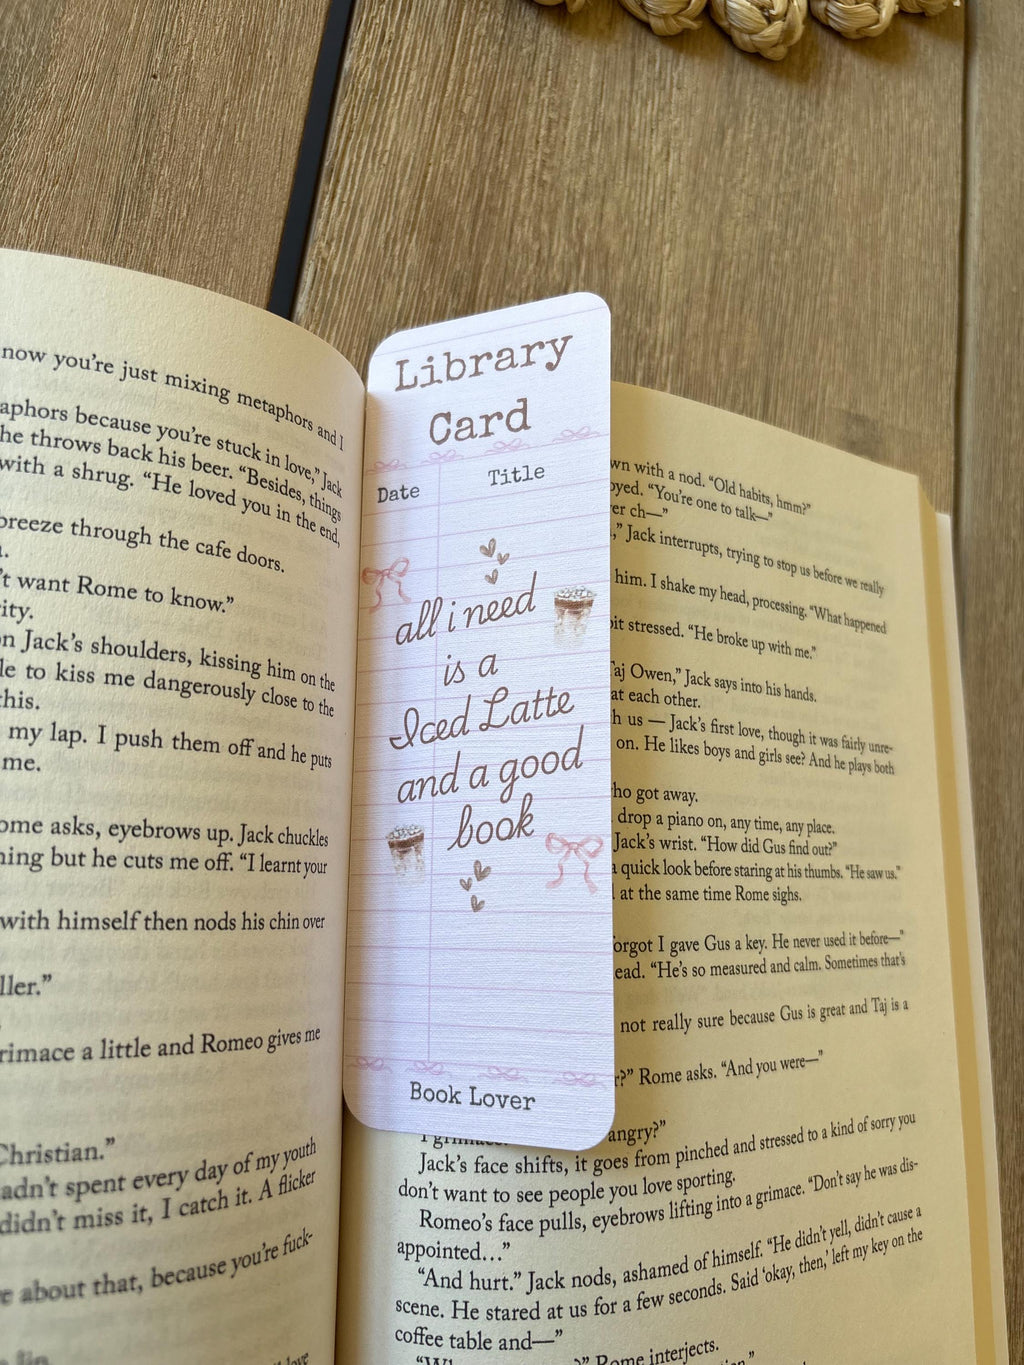 now you're just mixing metaphors and I
aphors because you're stuck in love," Jack
he throws back his beer. "Besides, things
with a shrug. "He loved you in the end,
breeze through the cafe doors.
't want Rome to know."
ity.
on Jack's shoulders, kissing him on the
le to kiss me dangerously close to the
this.
my lap. I push them off and he puts
me.
ome asks, eyebrows up. Jack chuckles
ning but he cuts me off. "I learnt your
with himself then nods his chin over
ller."
rimace a little and Romeo gives me
Christian."
adn't spent every day of my youth
didn't miss it, I catch it. A flicker
e about that, because you're fuck-
Library
Card
Date Title
all i need
is a
Iced Latte
and a good
book
Book Lover
wn with a nod. "Old habits, hmm?"
oyed. "You're one to talk—"
er ch—"
," Jack interrupts, trying to stop us before we really
him. I shake my head, processing. "What happened
bit stressed. "He broke up with me."
Taj Owen," Jack says into his hands.
at each other.
h us — Jack's first love, though it was fairly unre-
on. He likes boys and girls see? And he plays both
ho got away.
drop a piano on, any time, any place.
Jack's wrist. "How did Gus find out?"
a quick look before staring at his thumbs. "He saw us."
at the same time Rome sighs.
orgot I gave Gus a key. He never used it before—"
ead. "He's so measured and calm. Sometimes that's
not really sure because Gus is great and Taj is a
r?" Rome asks. "And you were—"
angry?"
Jack's face shifts, it goes from pinched and stressed to a kind of sorry you
don't want to see people you love sporting.
Romeo's face pulls, eyebrows lifting into a grimace. "Don't say he was dis-
appointed…"
"And hurt." Jack nods, ashamed of himself. "He didn't yell, didn't cause a
scene. He stared at us for a few seconds. Said 'okay, then,' left my key on the
coffee table and—"
Rome interjects.